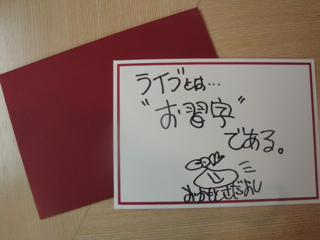 ライブとは…
“お習字”
である。
おかもとさだよし